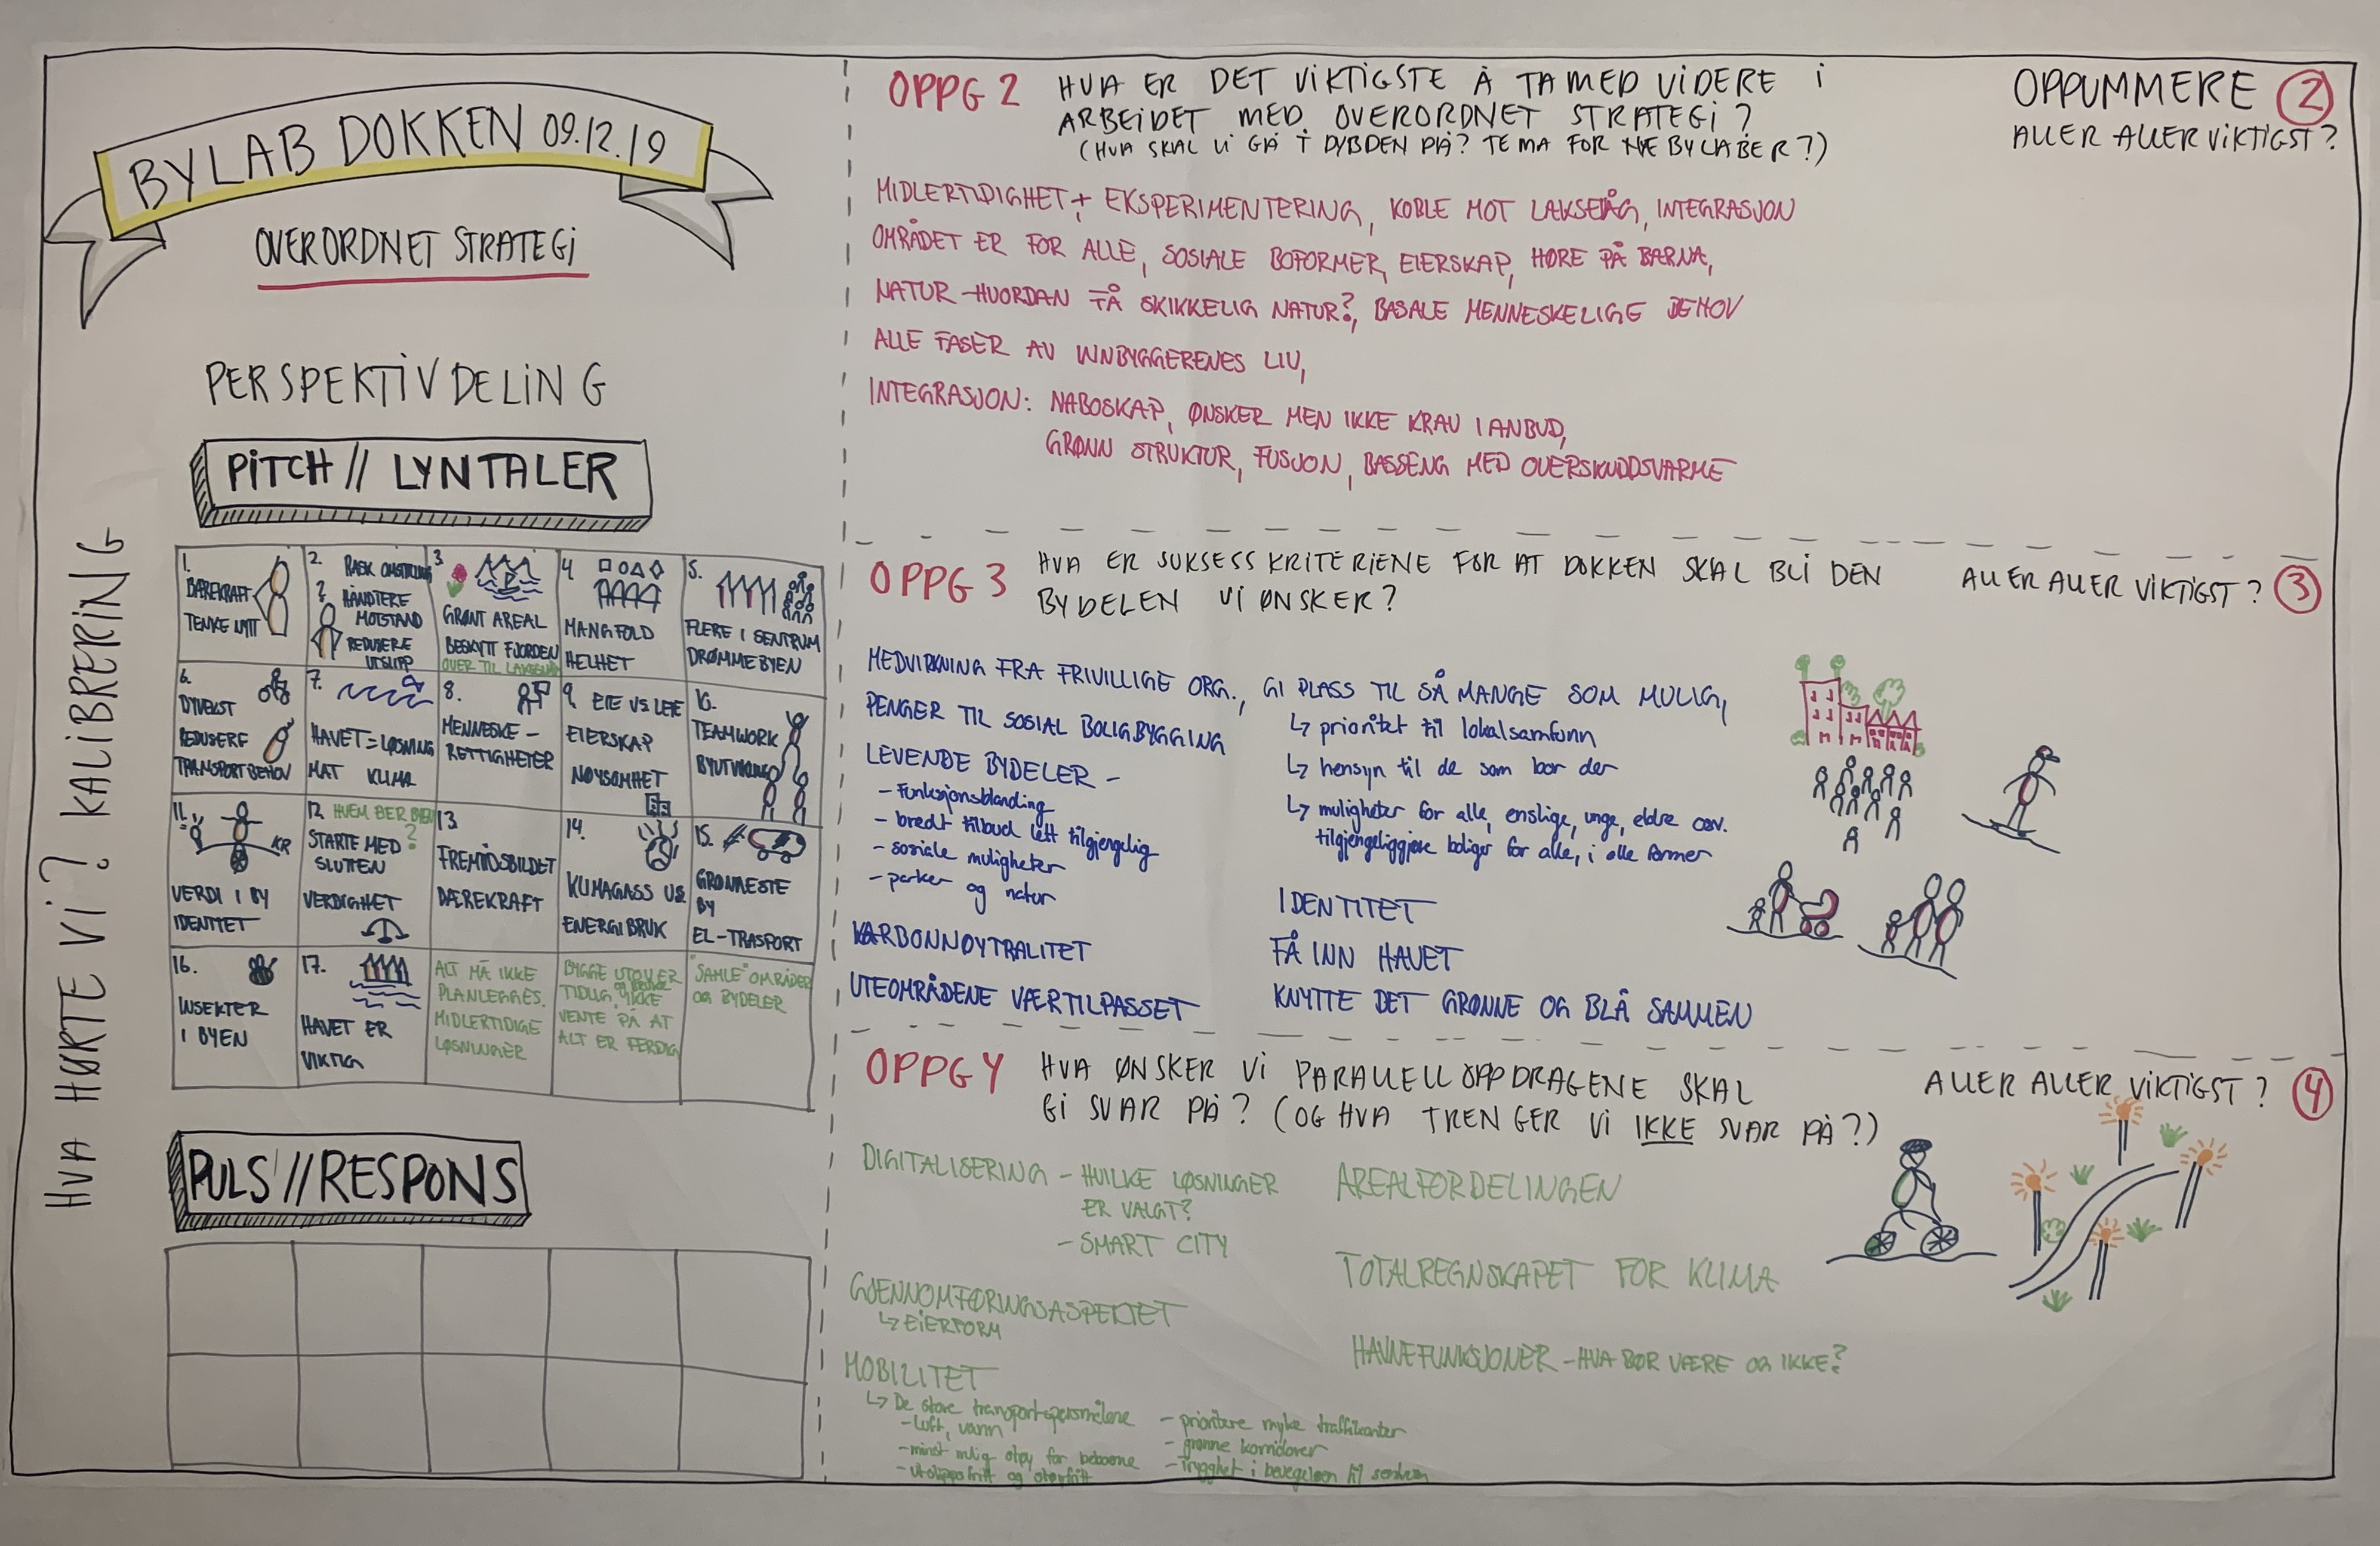 BYLAB DOKKEN 09.12.19
OVERORDNET STRATEGI
PERSPEKTIVDELING
PITCH // LYNTALER
HVA HØRTE VI? KALIBRERING
1.
BÆREKRAFT
TENKE NYTT
2. RASK OMSTILLING
?
HÅNDTERE
MOTSTAND
REDUSERE
UTSLIPP
3.
GRØNT AREAL
BESKYTT FJORDEN
OVER TIL
4.
MANGFOLD
HELHET
5.
FLERE I SENTRUM
DRØMMEBYEN
6.
DYVEKST
REDUSERE
TRANSPORTBEHOV
7.
HAVET = LØSNING
MAT KLIMA
8.
MENNESKE-
RETTIGHETER
9. EIE VS LEIE
EIERSKAP
NØYSOMHET
10.
TEAMWORK
BYUTVIKLING
11.
KR
VERDI I BY
IDENTITET
12. HVEM BER
STARTE MED ?
SLUTTEN
VERDIGHET
13.
FREMTIDSBILDET
BÆREKRAFT
14.
KLIMAGASS VS
ENERGIBRUK
15.
GRØNNESTE
BY
EL-TRASPORT
16.
INSEKTER
I BYEN
17.
HAVET ER
VIKTIG
ALT MÅ IKKE
PLANLEGGES.
MIDLERTIDIGE
LØSNINGER
BYGGE UTOVER
og bruke
TIDLIG, IKKE
VENTE PÅ AT
ALT ER FERDIG
"SAMLE" OMRÅDER
OG BYDELER
PULS // RESPONS
OPPG 2 HVA ER DET VIKTIGSTE Å TA MED VIDERE i
ARBEIDET MED OVERORDNET STRATEGI?
(HVA SKAL VI GÅ I DYBDEN PÅ? TEMA FOR NYE BYLABER?)
OPPUMMERE 2
ALLER ALLER VIKTIGST?
MIDLERTIDIGHET + EKSPERIMENTERING, KOBLE MOT LAKSEVÅG, INTEGRASJON
OMRÅDET ER FOR ALLE, SOSIALE BOFORMER, EIERSKAP, HØRE PÅ BARNA,
NATUR - HVORDAN FÅ SKIKKELIG NATUR?, BASALE MENNESKELIGE BEHOV
ALLE FASER AV INNBYGGERENES LIV,
INTEGRASJON: NABOSKAP, ØNSKER MEN IKKE KRAV I ANBUD,
GRØNN STRUKTUR, FUSJON, BASSENG MED OVERSKUDDSVARME
OPPG 3 HVA ER SUKSESS KRITERIENE FOR AT DOKKEN SKAL BLI DEN
BYDELEN Vi ØNSKER?
ALLER ALLER VIKTIGST? 3
MEDVIRKNING FRA FRIVILLIGE ORG.,
PENGER TIL SOSIAL BOLIGBYGGING
LEVENDE BYDELER -
- Funksjonsblanding
- bredt tilbud lett tilgjengelig
- sosiale muligheter
- parker og natur
KARBONNØYTRALITET
UTEOMRÅDENE VÆRTILPASSET
GI PLASS TIL SÅ MANGE SOM MULIG,
↳ prioritet til lokalsamfunn
↳ hensyn til de som bor der
↳ muligheter for alle, enslige, unge, eldre osv.
tilgjengeliggjøre boliger for alle, i alle former
IDENTITET
FÅ INN HAVET
KNYTTE DET GRØNNE OG BLÅ SAMMEN
OPPG 4 HVA ØNSKER Vi PARALLELLOPPDRAGENE SKAL
GI SVAR PÅ? (OG HVA TRENGER VI IKKE SVAR PÅ?)
ALLER ALLER VIKTIGST? 4
DIGITALISERING - HVILKE LØSNINGER
ER VALGT?
- SMART CITY
GJENNOMFØRINGSASPEKTET
↳ EIERFORM
MOBILITET
↳ De store transportspørsmålene
- luft, vann
- minst mulig støy for beboerne
- utslippsfritt og støyfritt
- prioritere myke traffikanter
- grønne korridorer
- Trygghet i bevegelsen til sentrum
AREALFORDELINGEN
TOTALREGNSKAPET FOR KLIMA
HAVNEFUNKSJONER - HVA BØR VÆRE OG IKKE?